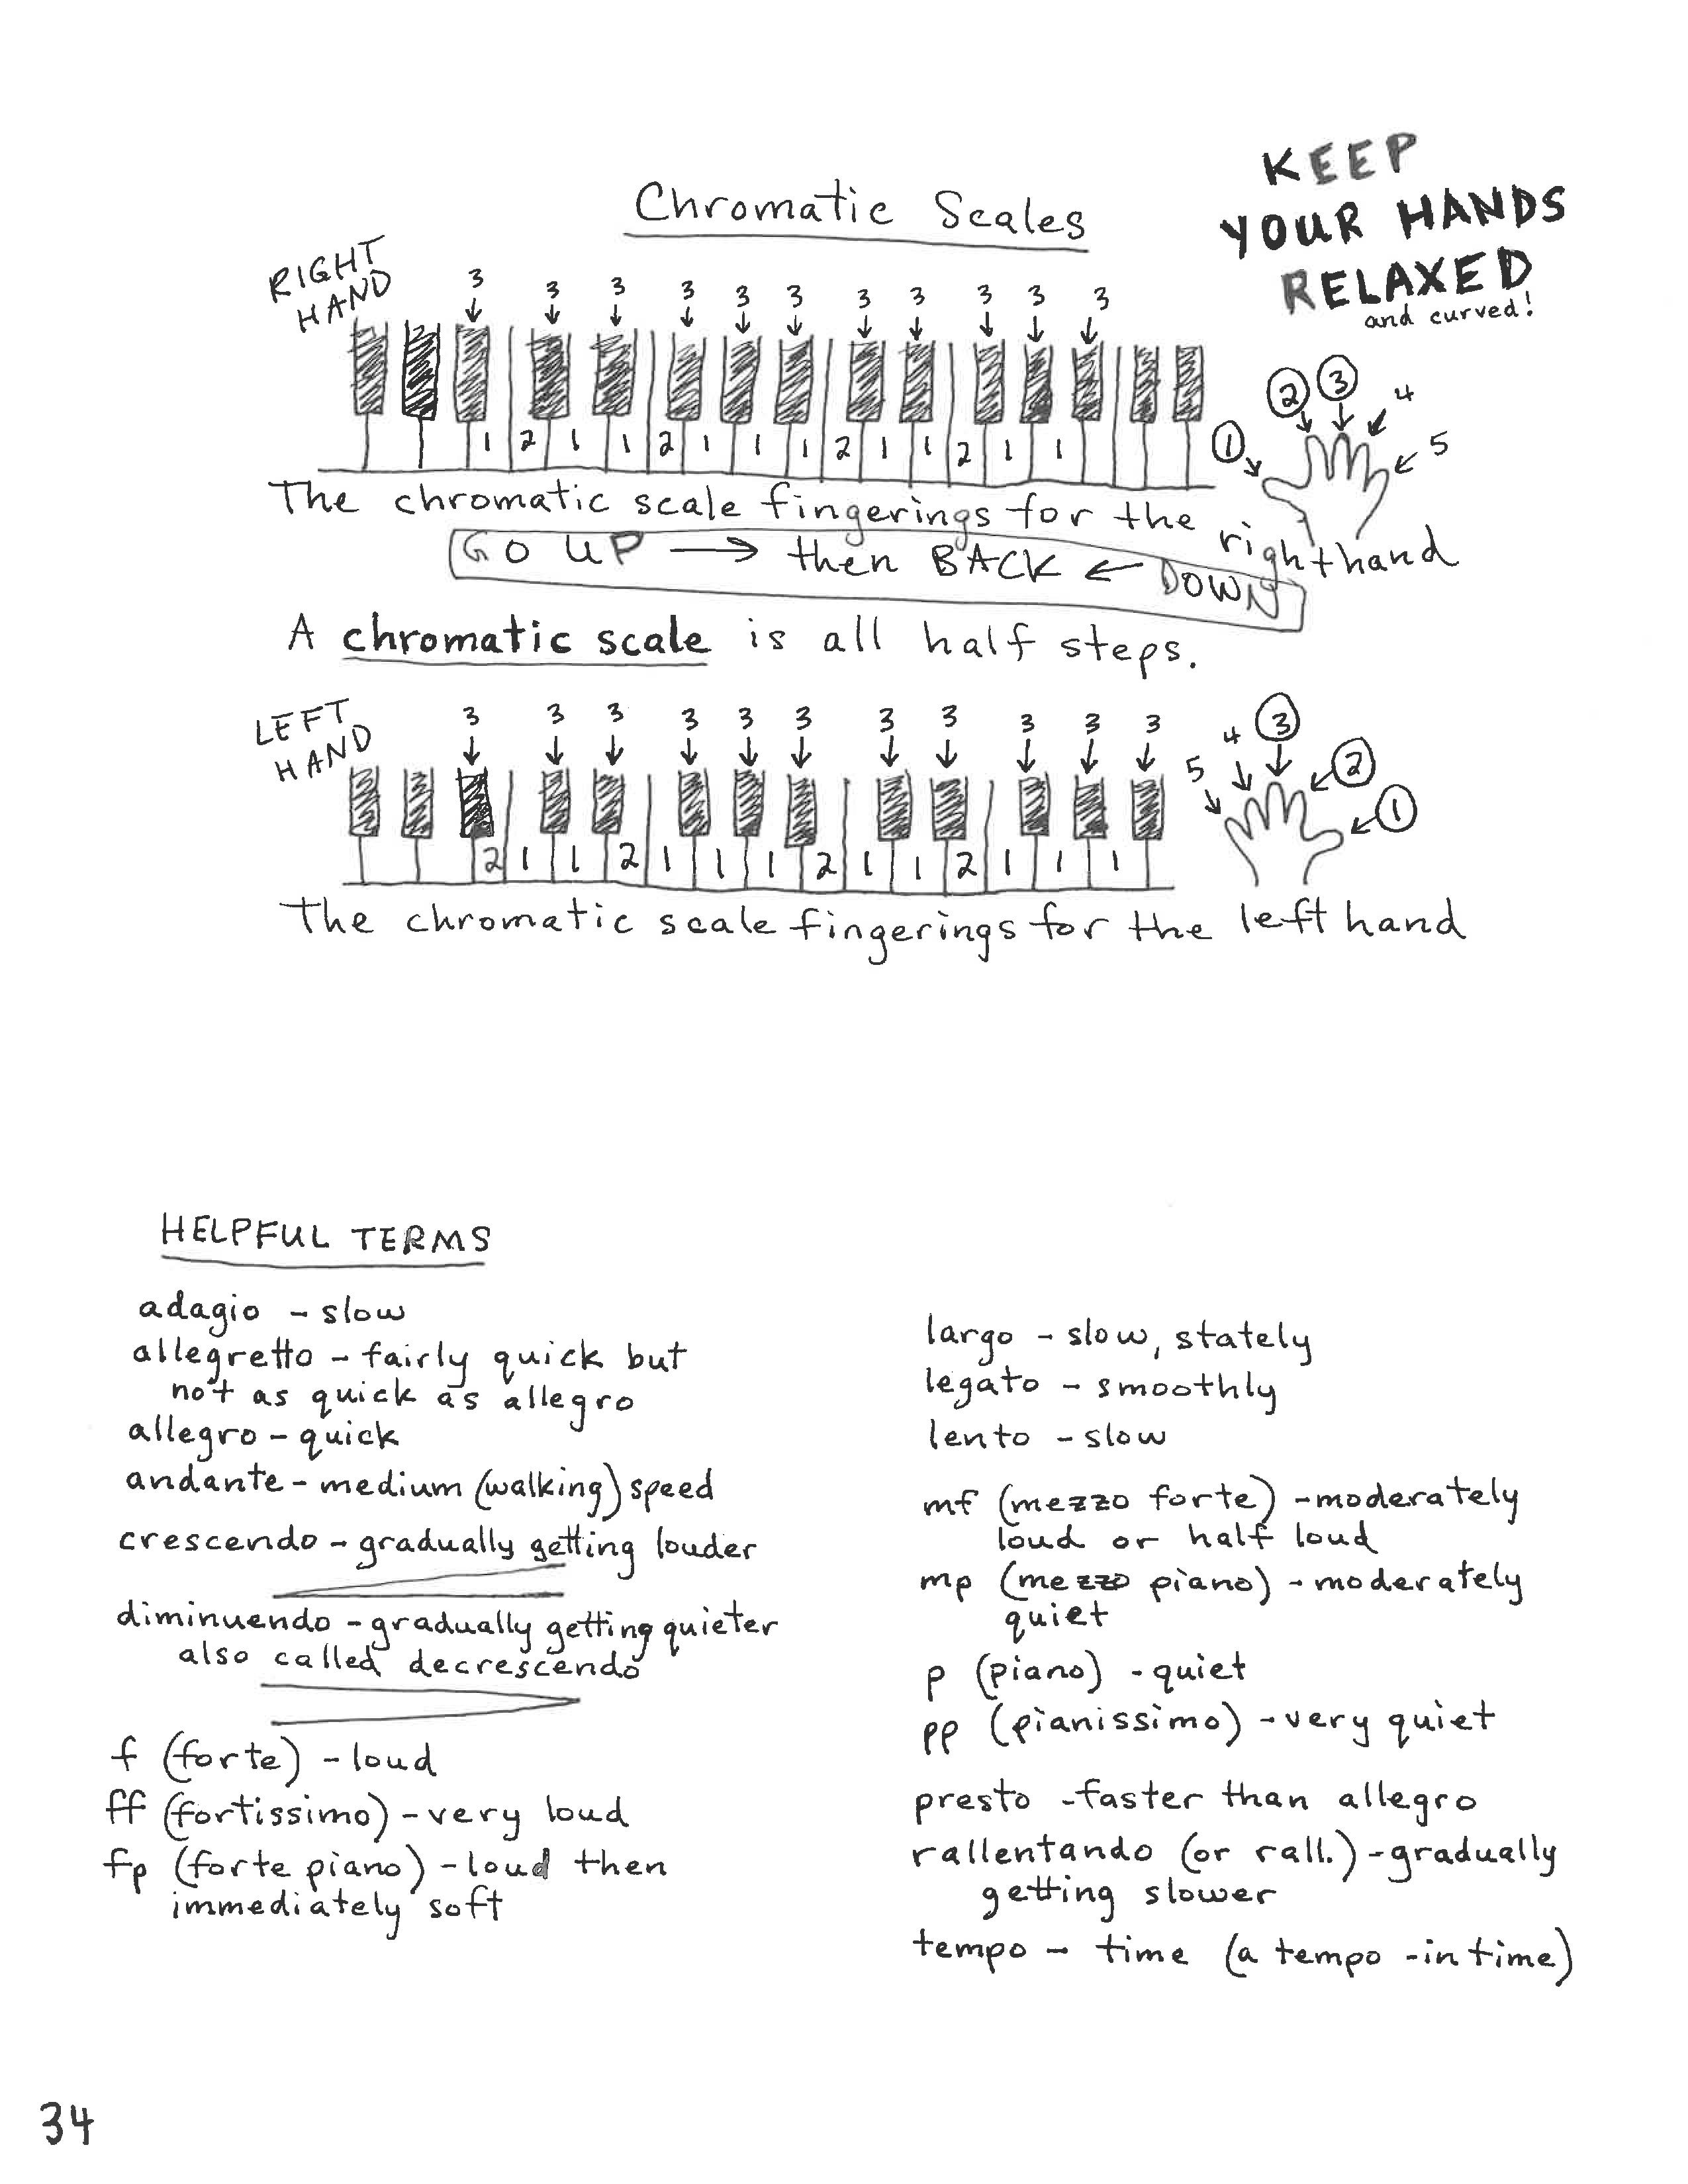 Chromatic Scales
KEEP
YOUR HANDS
RELAXED
and curved!
RIGHT
HAND
3 3 3 3 3 3 3 3 3 3 3
1 2 1 1 2 1 1 1 2 1 1 2 1 1
2 3 4
1 5
The chromatic scale fingerings for the right hand
GO UP → then BACK ← DOWN
A chromatic scale is all half steps.
LEFT
HAND
3 3 3 3 3 3 3 3 3 3 3
2 1 1 2 1 1 1 2 1 1 2 1 1 1
5 4 3 2 1
The chromatic scale fingerings for the left hand
HELPFUL TERMS
adagio - slow
allegretto - fairly quick but
not as quick as allegro
allegro - quick
andante - medium (walking) speed
crescendo - gradually getting louder
diminuendo - gradually getting quieter
also called decrescendo
f (forte) - loud
ff (fortissimo) - very loud
fp (forte piano) - loud then
immediately soft
largo - slow, stately
legato - smoothly
lento - slow
mf (mezzo forte) - moderately
loud or half loud
mp (mezzo piano) - moderately
quiet
p (piano) - quiet
pp (pianissimo) - very quiet
presto - faster than allegro
rallentando (or rall.) - gradually
getting slower
tempo - time (a tempo - in time)
34